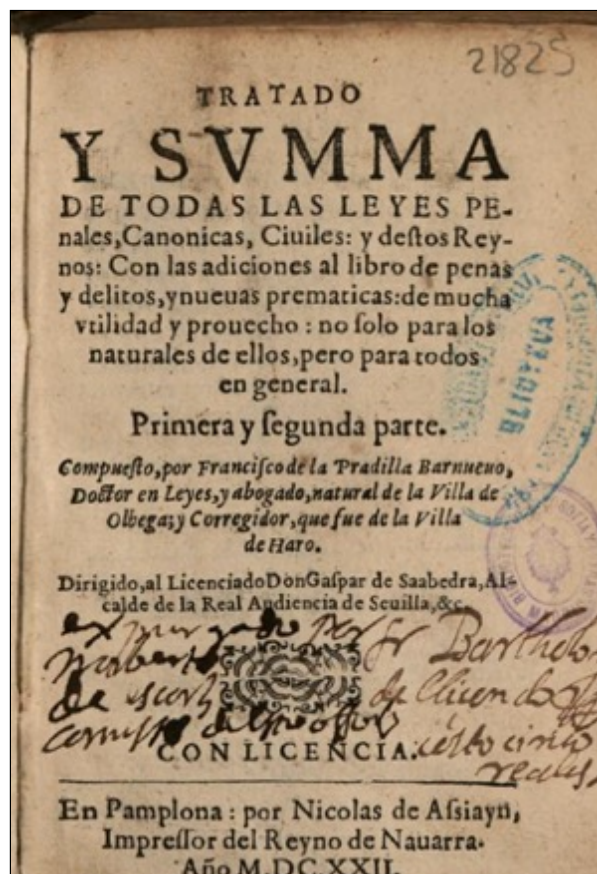 21825
TRATADO
Y SVMMA
DE TODAS LAS LEYES PE-
nales, Canonicas, Ciuiles: y destos Rey-
nos: Con las adiciones al libro de penas
y delitos, y nueuas prematicas: de mucha
vtilidad y prouecho : no solo para los
naturales de ellos, pero para todos
en general.
Primera y segunda parte.
Compuesto, por Francisco de la Pradilla Barnueuo,
Doctor en Leyes, y abogado, natural de la Villa de
Olbega; y Corregidor, que fue de la Villa
de Haro.
Dirigido, al Licenciado Don Gaspar de Saabedra, Al-
calde de la Real Audiencia de Seuilla, &c.
expurgado por fr
de
CON LICENCIA.
costo cinco
reales
En Pamplona : por Nicolas de Assiayn,
Impressor del Reyno de Nauarra.
Año M.DC.XXII.
BLIOTECA